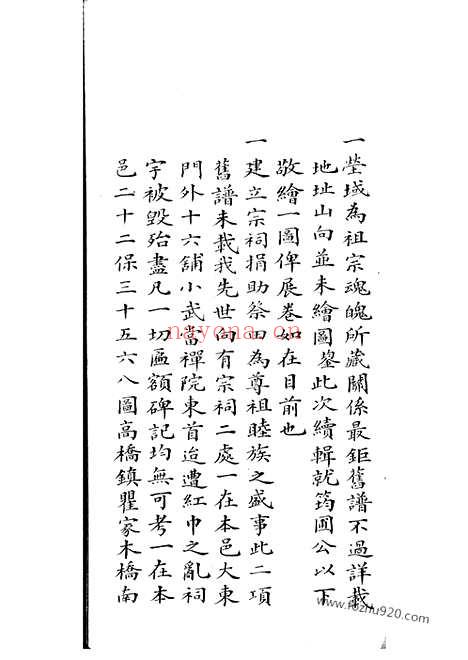 一塋域為祖宗魂魄所藏關係最鉅舊譜不過詳載
地址山向並未繪圖塋此次續輯就筠圃公以下
敬繪一圖俾展卷如在目前也
一建立宗祠捐助祭田為尊祖睦族之盛事此二項
舊譜未載我先世向有宗祠二處一在本邑大東
門外十六舖小武當禪院東首迨遭紅巾之亂祠
宇被毀殆盡凡一切匾額碑記均無可考一在本
邑二十二保三十五六八圖高橋鎮瞿家木橋南
nayona.cn
www.fozhu920.com